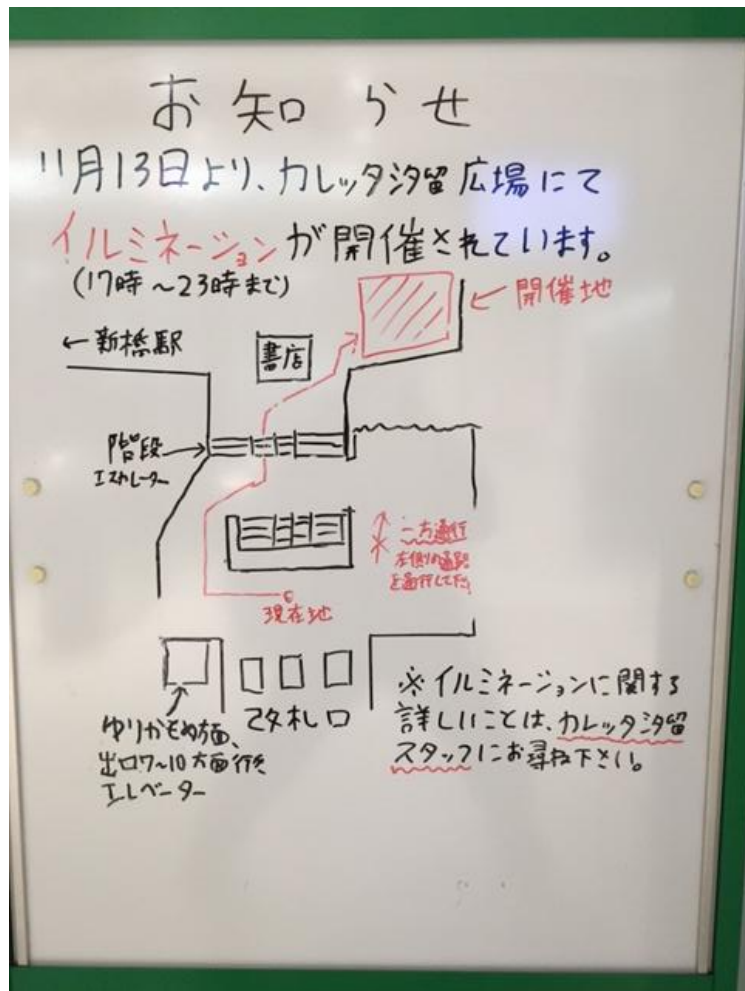 お知らせ
11月13日より、カレッタ汐留広場にて
イルミネーションが開催されています。
(17時～23時まで)
←開催地
←新橋駅
書店
階段→
エスカレーター
一方通行
左側の通路
を通行して下さい
現在地
改札口
ゆりかもめ方面、
出口7～10方面行き
エレベーター
※イルミネーションに関する
詳しいことは、カレッタ汐留
スタッフにお尋ね下さい。